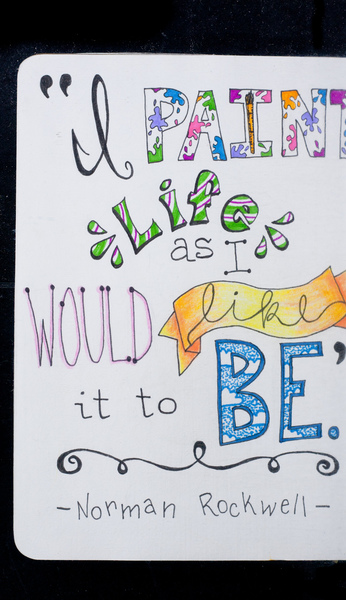 "I PAINT
Life
as I
WOULD like
it to BE."
-Norman Rockwell-